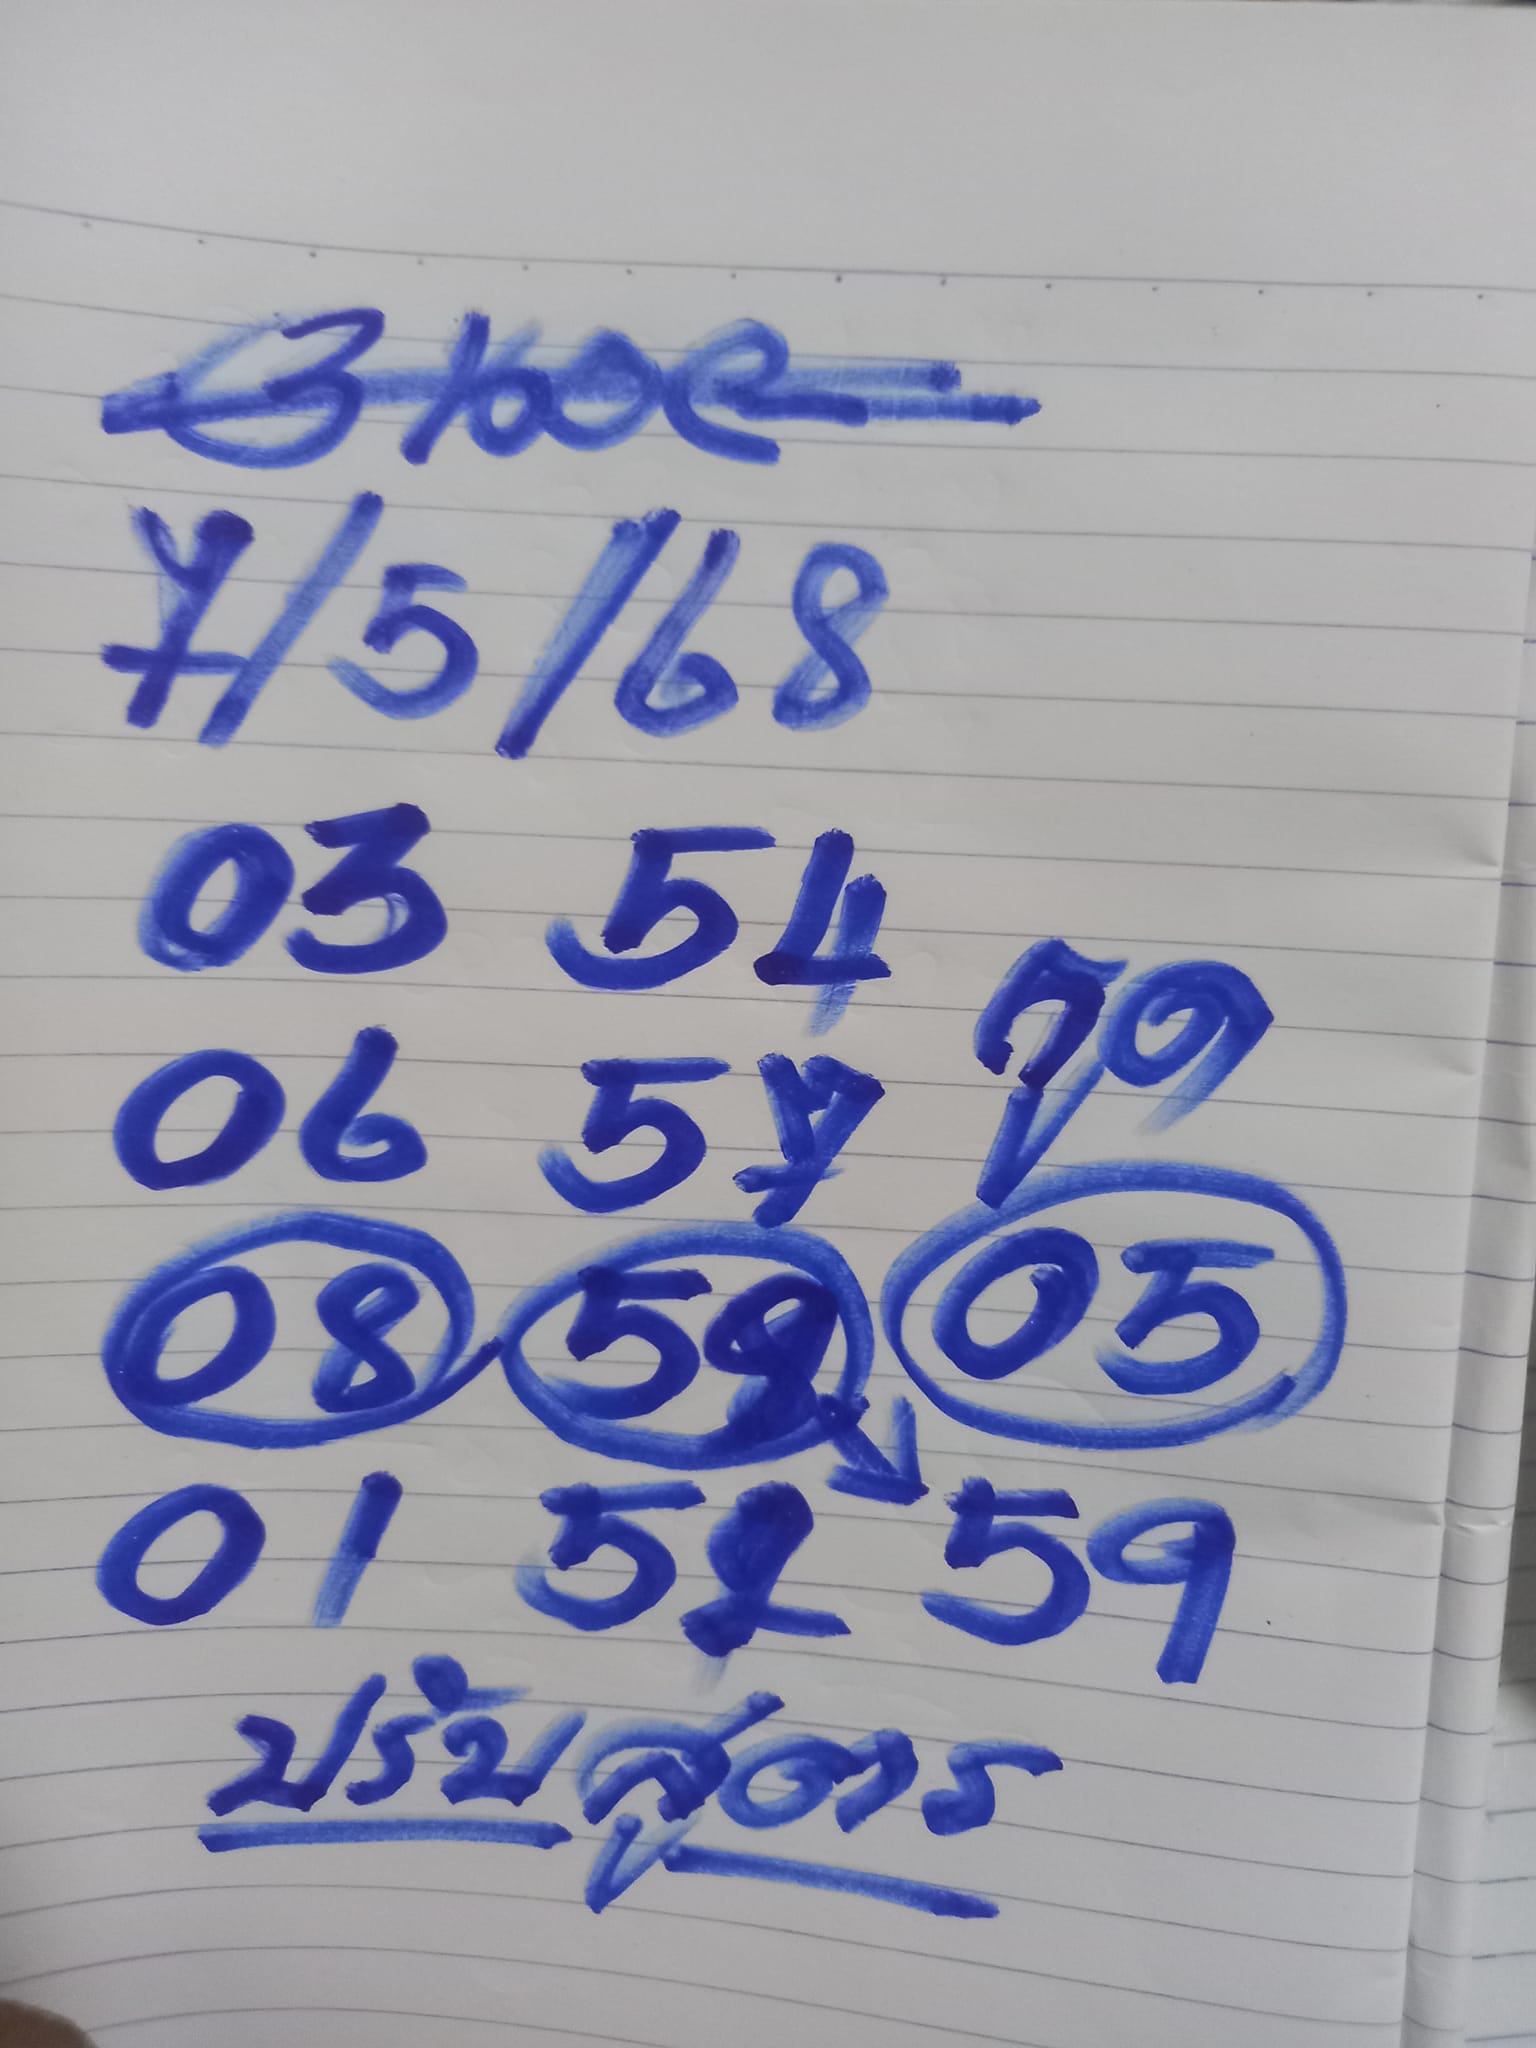 7/5/68
03 54
06 57 ชุด
08 59 05
01 52 59
ปรับสูตร